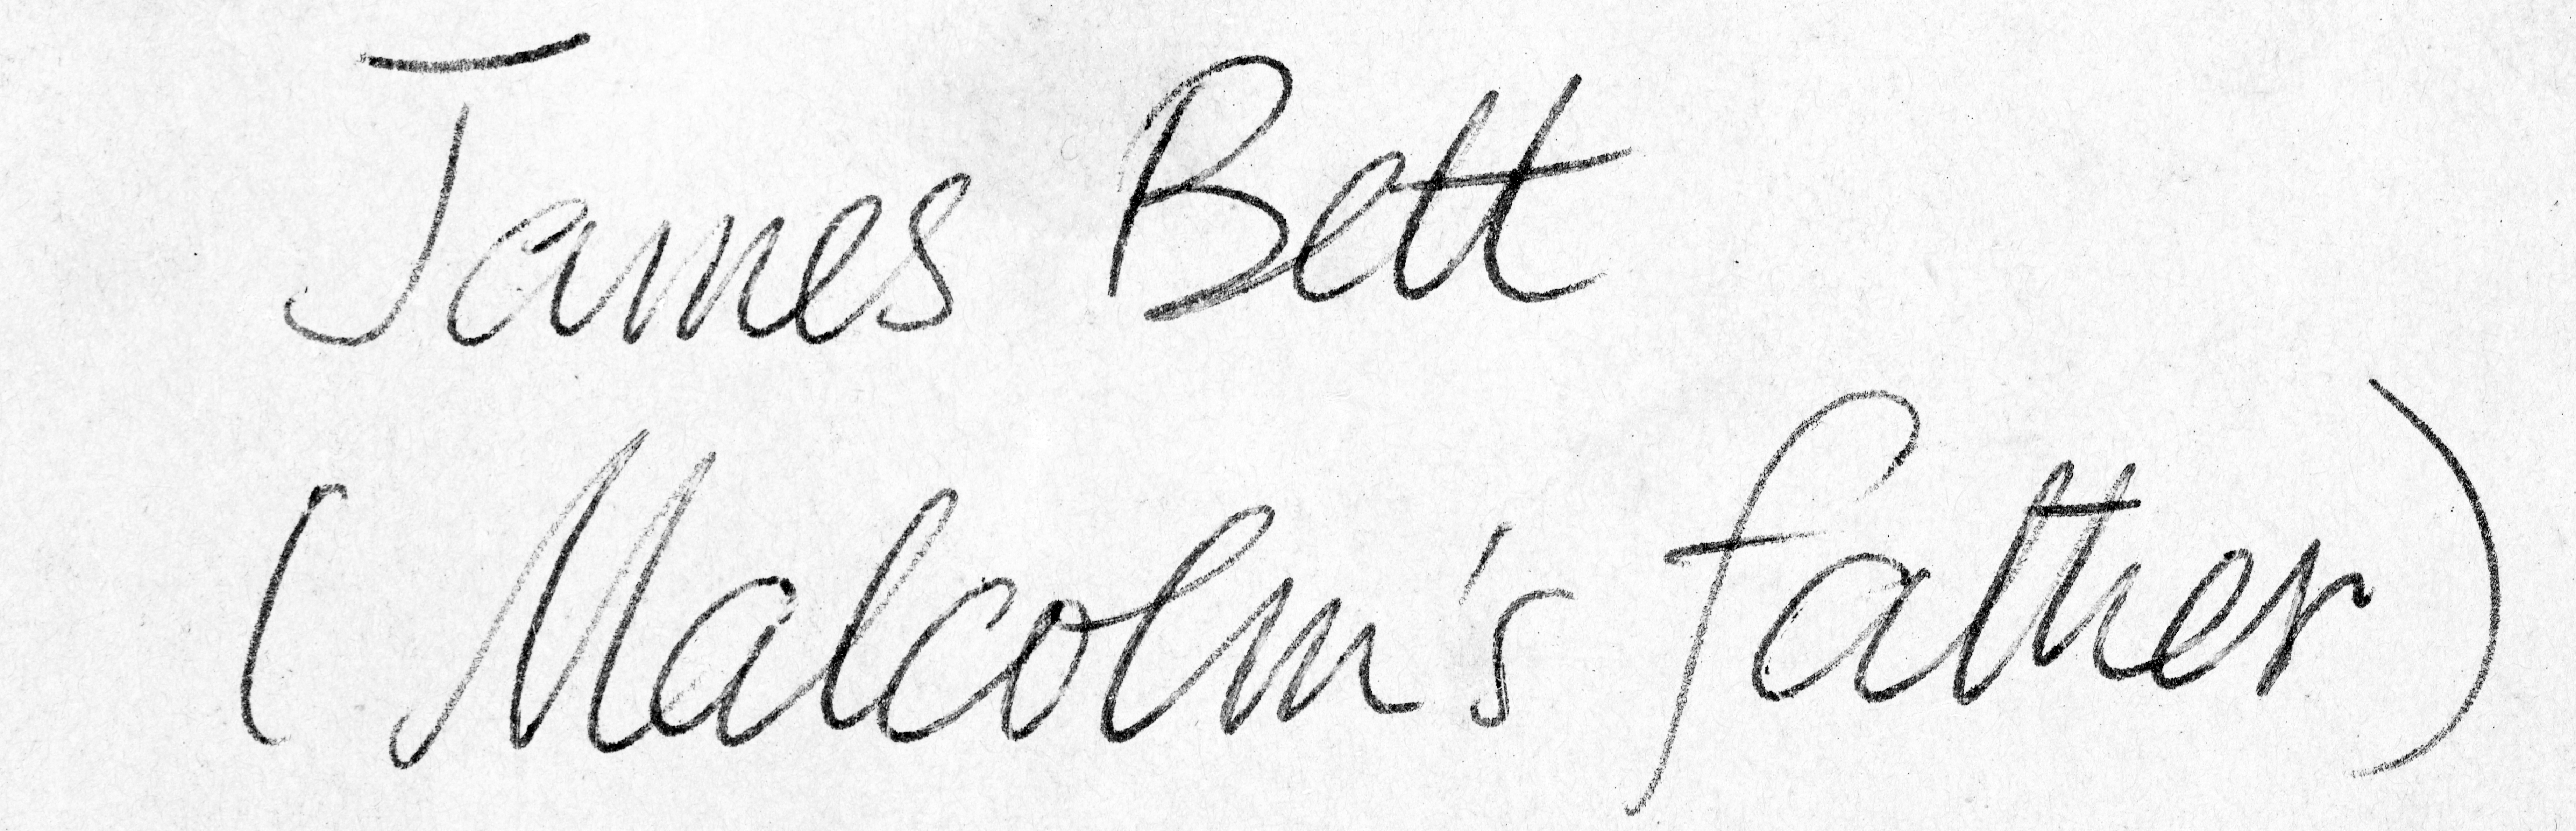 James Bett
(Malcolm's father)